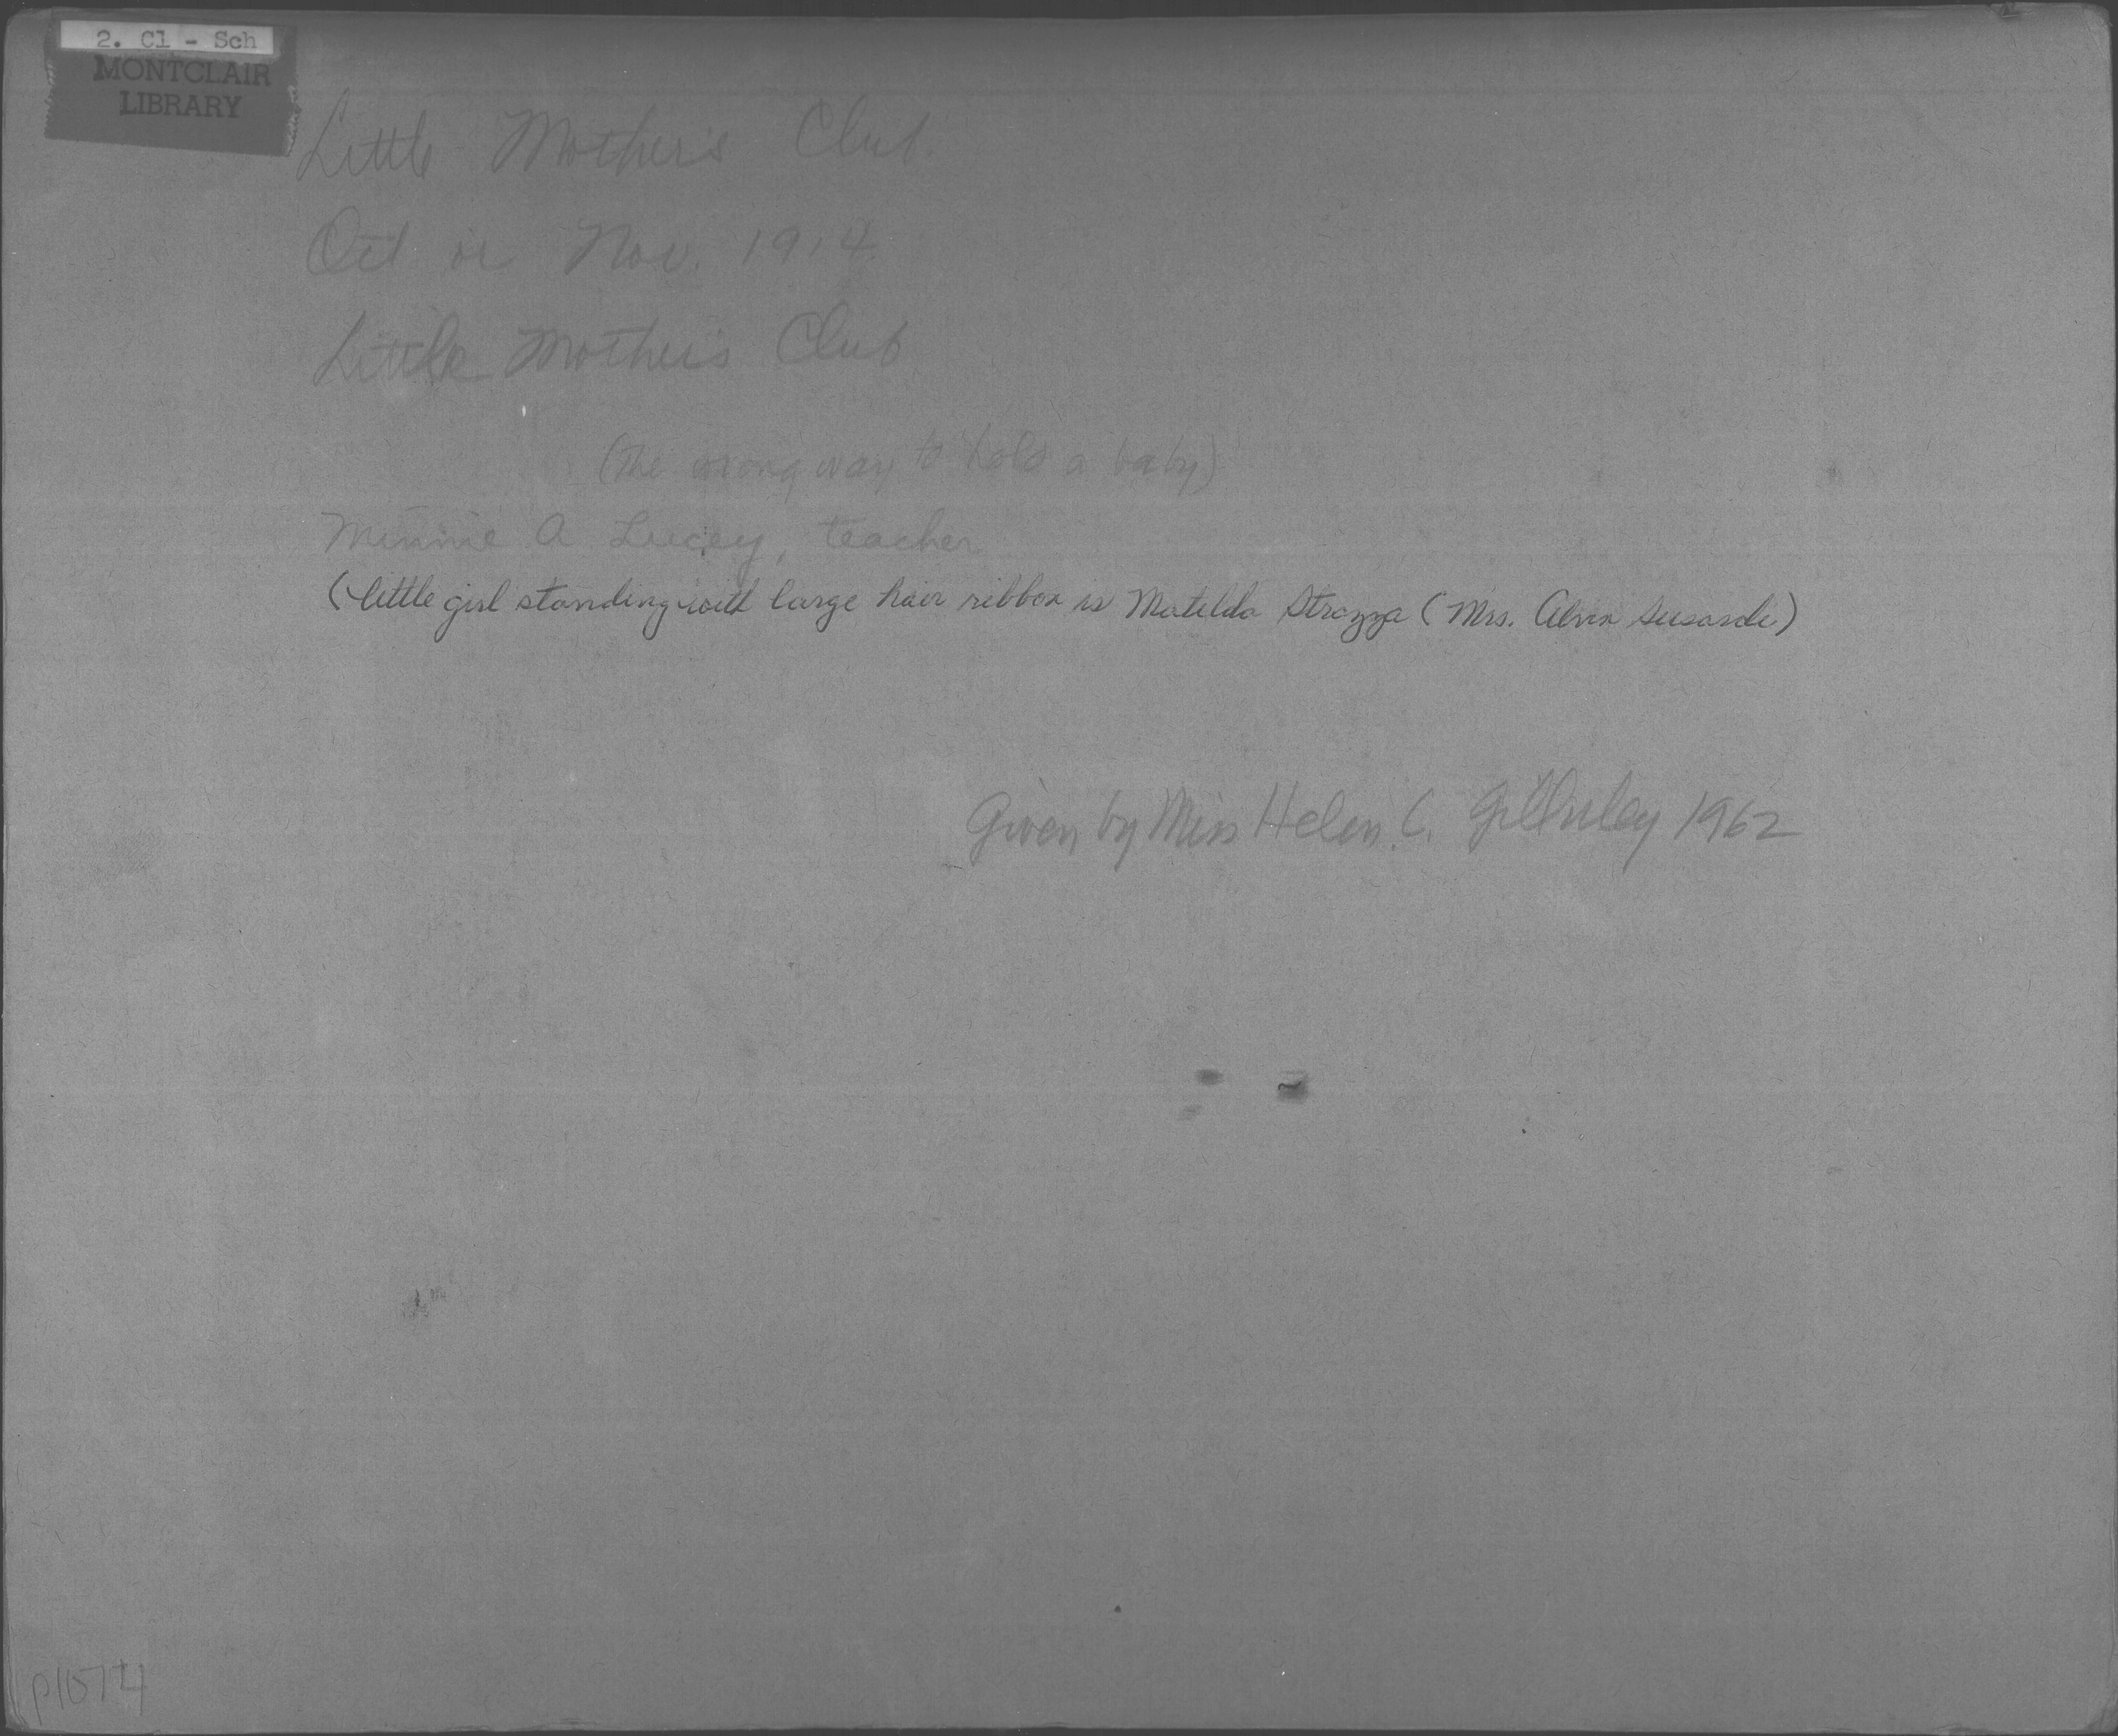 2. Cl - Sch
MONTCLAIR
LIBRARY
Little Mother's Club.
Oct or Nov. 1914
Little Mother's Club
(The wrong way to hold a baby)
Minnie A Lucey, teacher
(little girl standing with large hair ribbon is Matilda Strazza (Mrs. Alvin)
Given by Miss Helen C. Gilhuley 1962